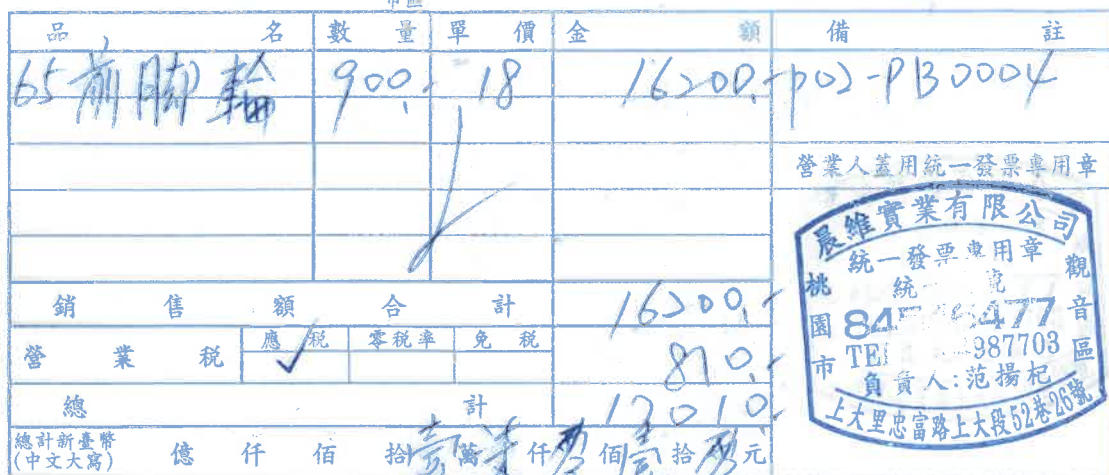 品名 數量 單價 金額 備註
65前脚輪 900.- 18 16200.- P02-PB0004
營業人蓋用統一發票專用章
晨維實業有限公司
統一發票專用章
桃園市 觀音區
TEL 987703
負責人:范揚杞
上大里忠富路上大段52巷26號
銷售額合計 16200.-
營業稅 應稅 ✓ 零稅率 免稅 810.-
總計 17010.-
總計新臺幣
(中文大寫) 億 仟 佰 拾 壹 萬 柒 仟 零 佰 壹 拾 零 元